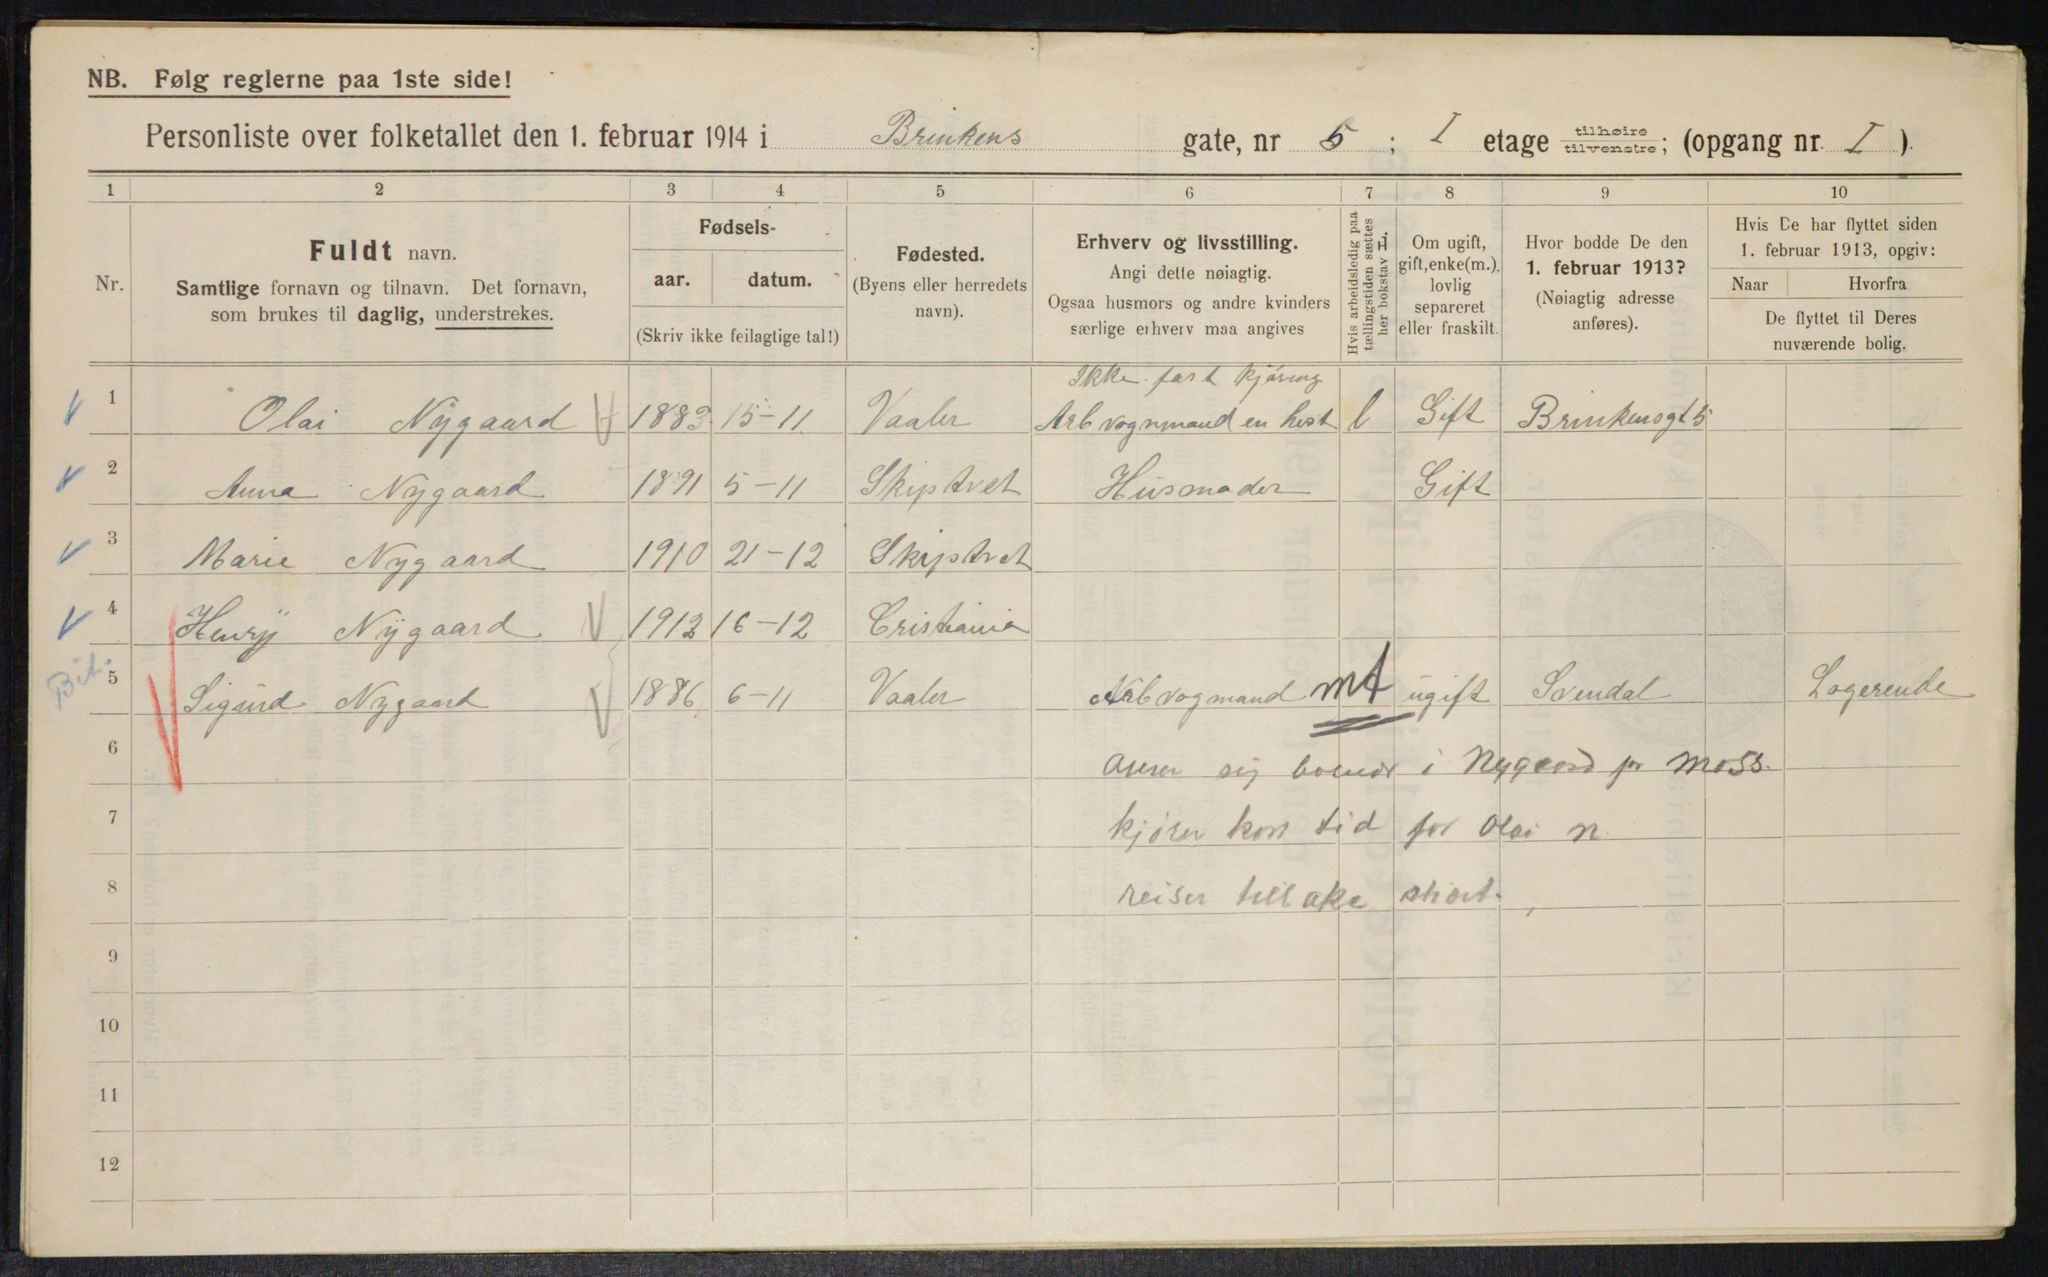 NB. Følg reglerne paa 1ste side!
Personliste over folketallet den 1. februar 1914 i Brinkens gate, nr 5; I etage tilhøire tilvenstre; (opgang nr. I).
1 2 3 4 5 6 7 8 9 10
Nr.
Fuldt navn.
Samtlige fornavn og tilnavn. Det fornavn,
som brukes til daglig, understrekes.
Fødsels-
aar. datum.
(Skriv ikke feilagtige tal!)
Fødested.
(Byens eller herredets
navn).
Erhverv og livsstilling.
Angi dette nøiagtig.
Ogsaa husmors og andre kvinders
særlige erhverv maa angives
Hvis arbeidsledig paa
tællingstiden sættes
her bokstav L.
Om ugift,
gift, enke(m.),
lovlig
separeret
eller fraskilt.
Hvor bodde De den
1. februar 1913?
(Nøiagtig adresse
anføres).
Hvis De har flyttet siden
1. februar 1913, opgiv:
Naar Hvorfra
De flyttet til Deres
nuværende bolig.
Ikke fast kjøring
1 Olai Nÿgaard 1883 15-11 Vaaler Arb vognmand en hest l Gift Brinkensgt 5
2 Anna Nygaard 1891 5-11 Skiptvet Husmoder Gift
3 Marie Nygaard 1910 21-12 Skiptvet
4 Henrÿ Nÿgaard 1912 16-12 Cristiania
Bit. 5 Sigurd Nygaard 1886 6-11 Vaaler Arb vogmand mt ugift Svendal Logerende
6 anser sig boende i Nygaard pr Moss.
7 kjører kort tid for Olai N.
8 reiser tilbake snart.
9
10
11
12